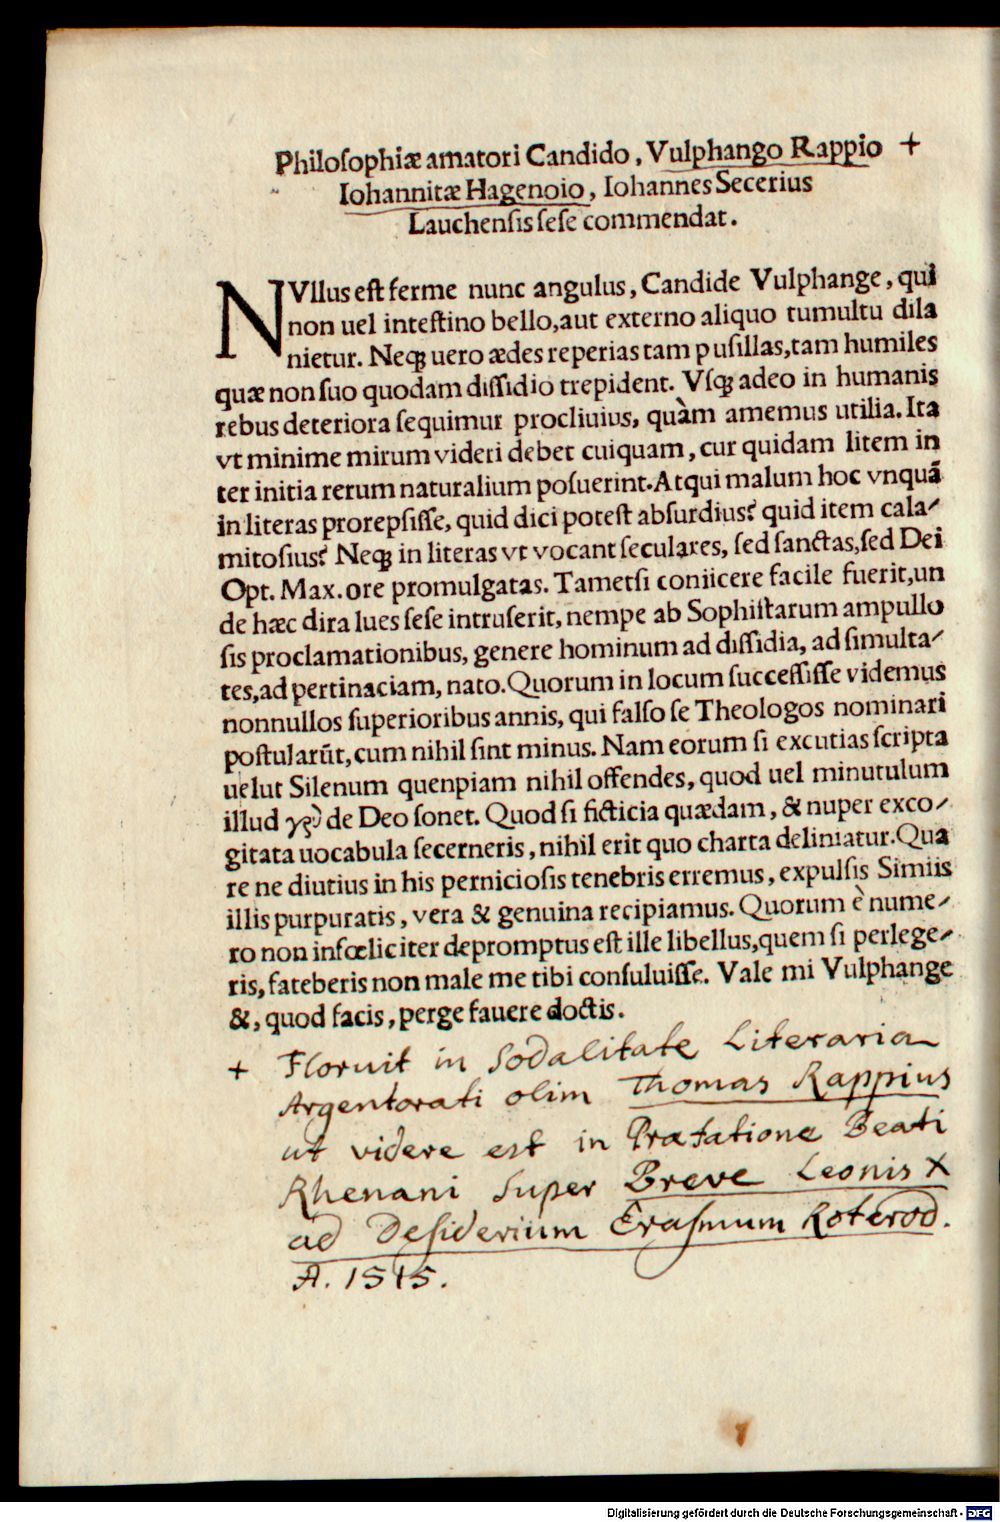 Philoſophiæ amatori Candido, Vulphango Rappio +
Iohannitæ Hagenoio, Iohannes Secerius
Lauchenſis ſeſe commendat.
NVllus eſt ferme nunc angulus, Candide Vulphange, qui
non uel inteſtino bello, aut externo aliquo tumultu dila
nietur. Neqꝫ uero ædes reperias tam puſillas, tam humiles
quæ non ſuo quodam diſſidio trepident. Vſqꝫ adeo in humanis
rebus deteriora ſequimur procliuius, quàm amemus utilia. Ita
vt minime mirum videri debet cuiquam, cur quidam litem in
ter initia rerum naturalium poſuerint. Atqui malum hoc vnquã
in literas prorepſiſſe, quid dici poteſt abſurdius? quid item cala-
mitoſius? Neqꝫ in literas vt vocant ſeculares, ſed ſanctas, ſed Dei
Opt. Max. ore promulgatas. Tametſi coniicere facile fuerit, un
de hæc dira lues ſeſe intruſerit, nempe ab Sophiſtarum ampullo
ſis proclamationibus, genere hominum ad diſſidia, ad ſimulta-
tes, ad pertinaciam, nato. Quorum in locum ſucceſſiſſe videmus
nonnullos ſuperioribus annis, qui falſo ſe Theologos nominari
poſtularũt, cum nihil ſint minus. Nam eorum ſi excutias ſcripta
uelut Silenum quenpiam nihil offendes, quod uel minutulum
illud γρῦ de Deo ſonet. Quod ſi ficticia quædam, & nuper exco-
gitata uocabula ſecerneris, nihil erit quo charta deliniatur. Qua
re ne diutius in his pernicioſis tenebris erremus, expulſis Simiis
illis purpuratis, vera & genuina recipiamus. Quorum è nume-
ro non infœliciter depromptus eſt ille libellus, quem ſi perlege-
ris, fateberis non male me tibi conſuluiſſe. Vale mi Vulphange
&, quod facis, perge fauere doctis.
+ Floruit in Sodalitate Literaria
Argentorati olim Thomas Rappius
ut videre est in Præfatione Beati
Rhenani super Breve Leonis X
ad Deſiderium Eraſmum Roterod.
A. 1515.
Digitalisierung gefördert durch die Deutsche Forschungsgemeinschaft - DFG